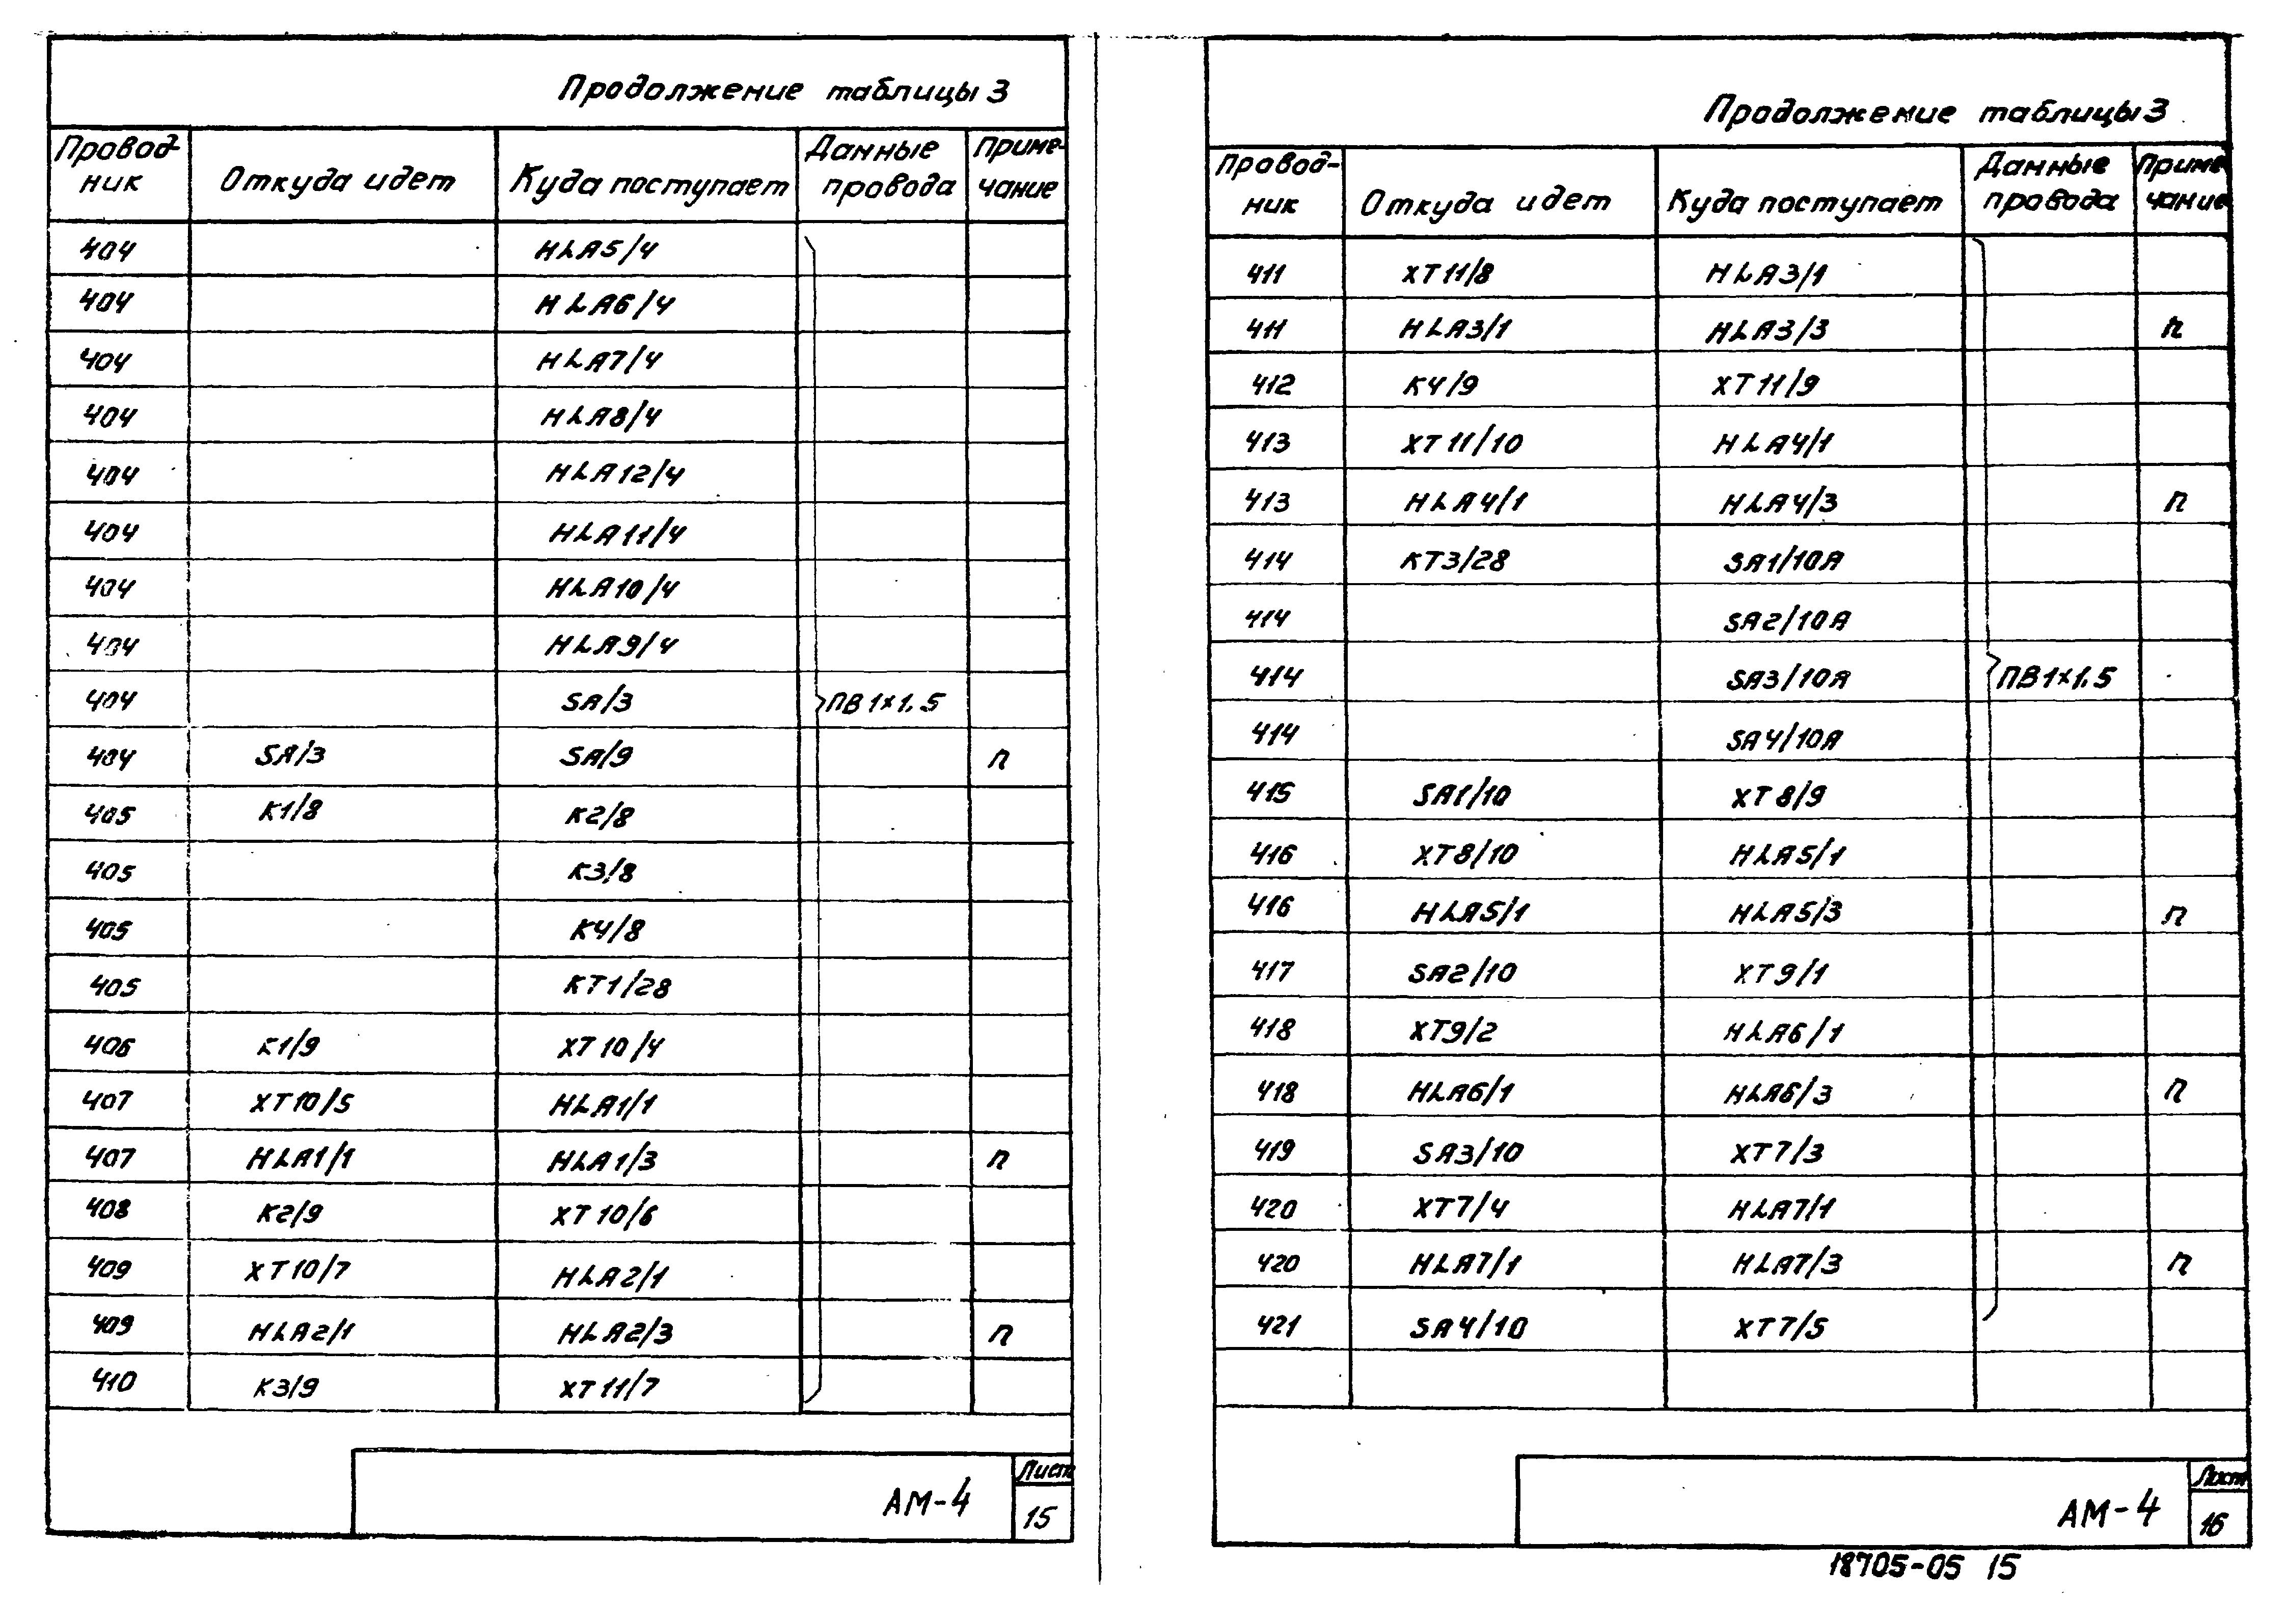 Продолжение таблицы 3
Провод-ник Откуда идет Куда поступает Данные провода Приме-чание
404 HLA5/4
404 HLA6/4
404 HLA7/4
404 HLA8/4
404 HLA12/4
404 HLA11/4
404 HLA10/4
404 HLA9/4
404 SA/3 ПВ 1×1.5
404 SA/3 SA/9 п
405 K1/8 K2/8
405 K3/8
405 K4/8
405 KT1/28
406 K1/9 XT10/4
407 XT10/5 HLA1/1
407 HLA1/1 HLA1/3 п
408 K2/9 XT10/6
409 XT10/7 HLA2/1
409 HLA2/1 HLA2/3 п
410 K3/9 XT11/7
АМ-4
Лист
15
Продолжение таблицы 3
Провод-ник Откуда идет Куда поступает Данные провода Приме-чание
411 XT11/8 HLA3/1
411 HLA3/1 HLA3/3 п
412 K4/9 XT11/9
413 XT11/10 HLA4/1
413 HLA4/1 HLA4/3 п
414 KT3/28 SA1/10A
414 SA2/10A
414 SA3/10A ПВ 1×1.5
414 SA4/10A
415 SA1/10 XT8/9
416 XT8/10 HLA5/1
416 HLA5/1 HLA5/3 п
417 SA2/10 XT9/1
418 XT9/2 HLA6/1
418 HLA6/1 HLA6/3 п
419 SA3/10 XT7/3
420 XT7/4 HLA7/1
420 HLA7/1 HLA7/3 п
421 SA4/10 XT7/5
АМ-4
Лист
16
18705-05 15